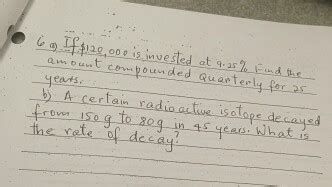 6 a) If $120,000 is invested at 9.25% Find the
amount compounded Quarterly for 25
years.
b) A certain radioactive isotope decayed
from 150 g to 80 g in 45 years. What is
the rate of decay?